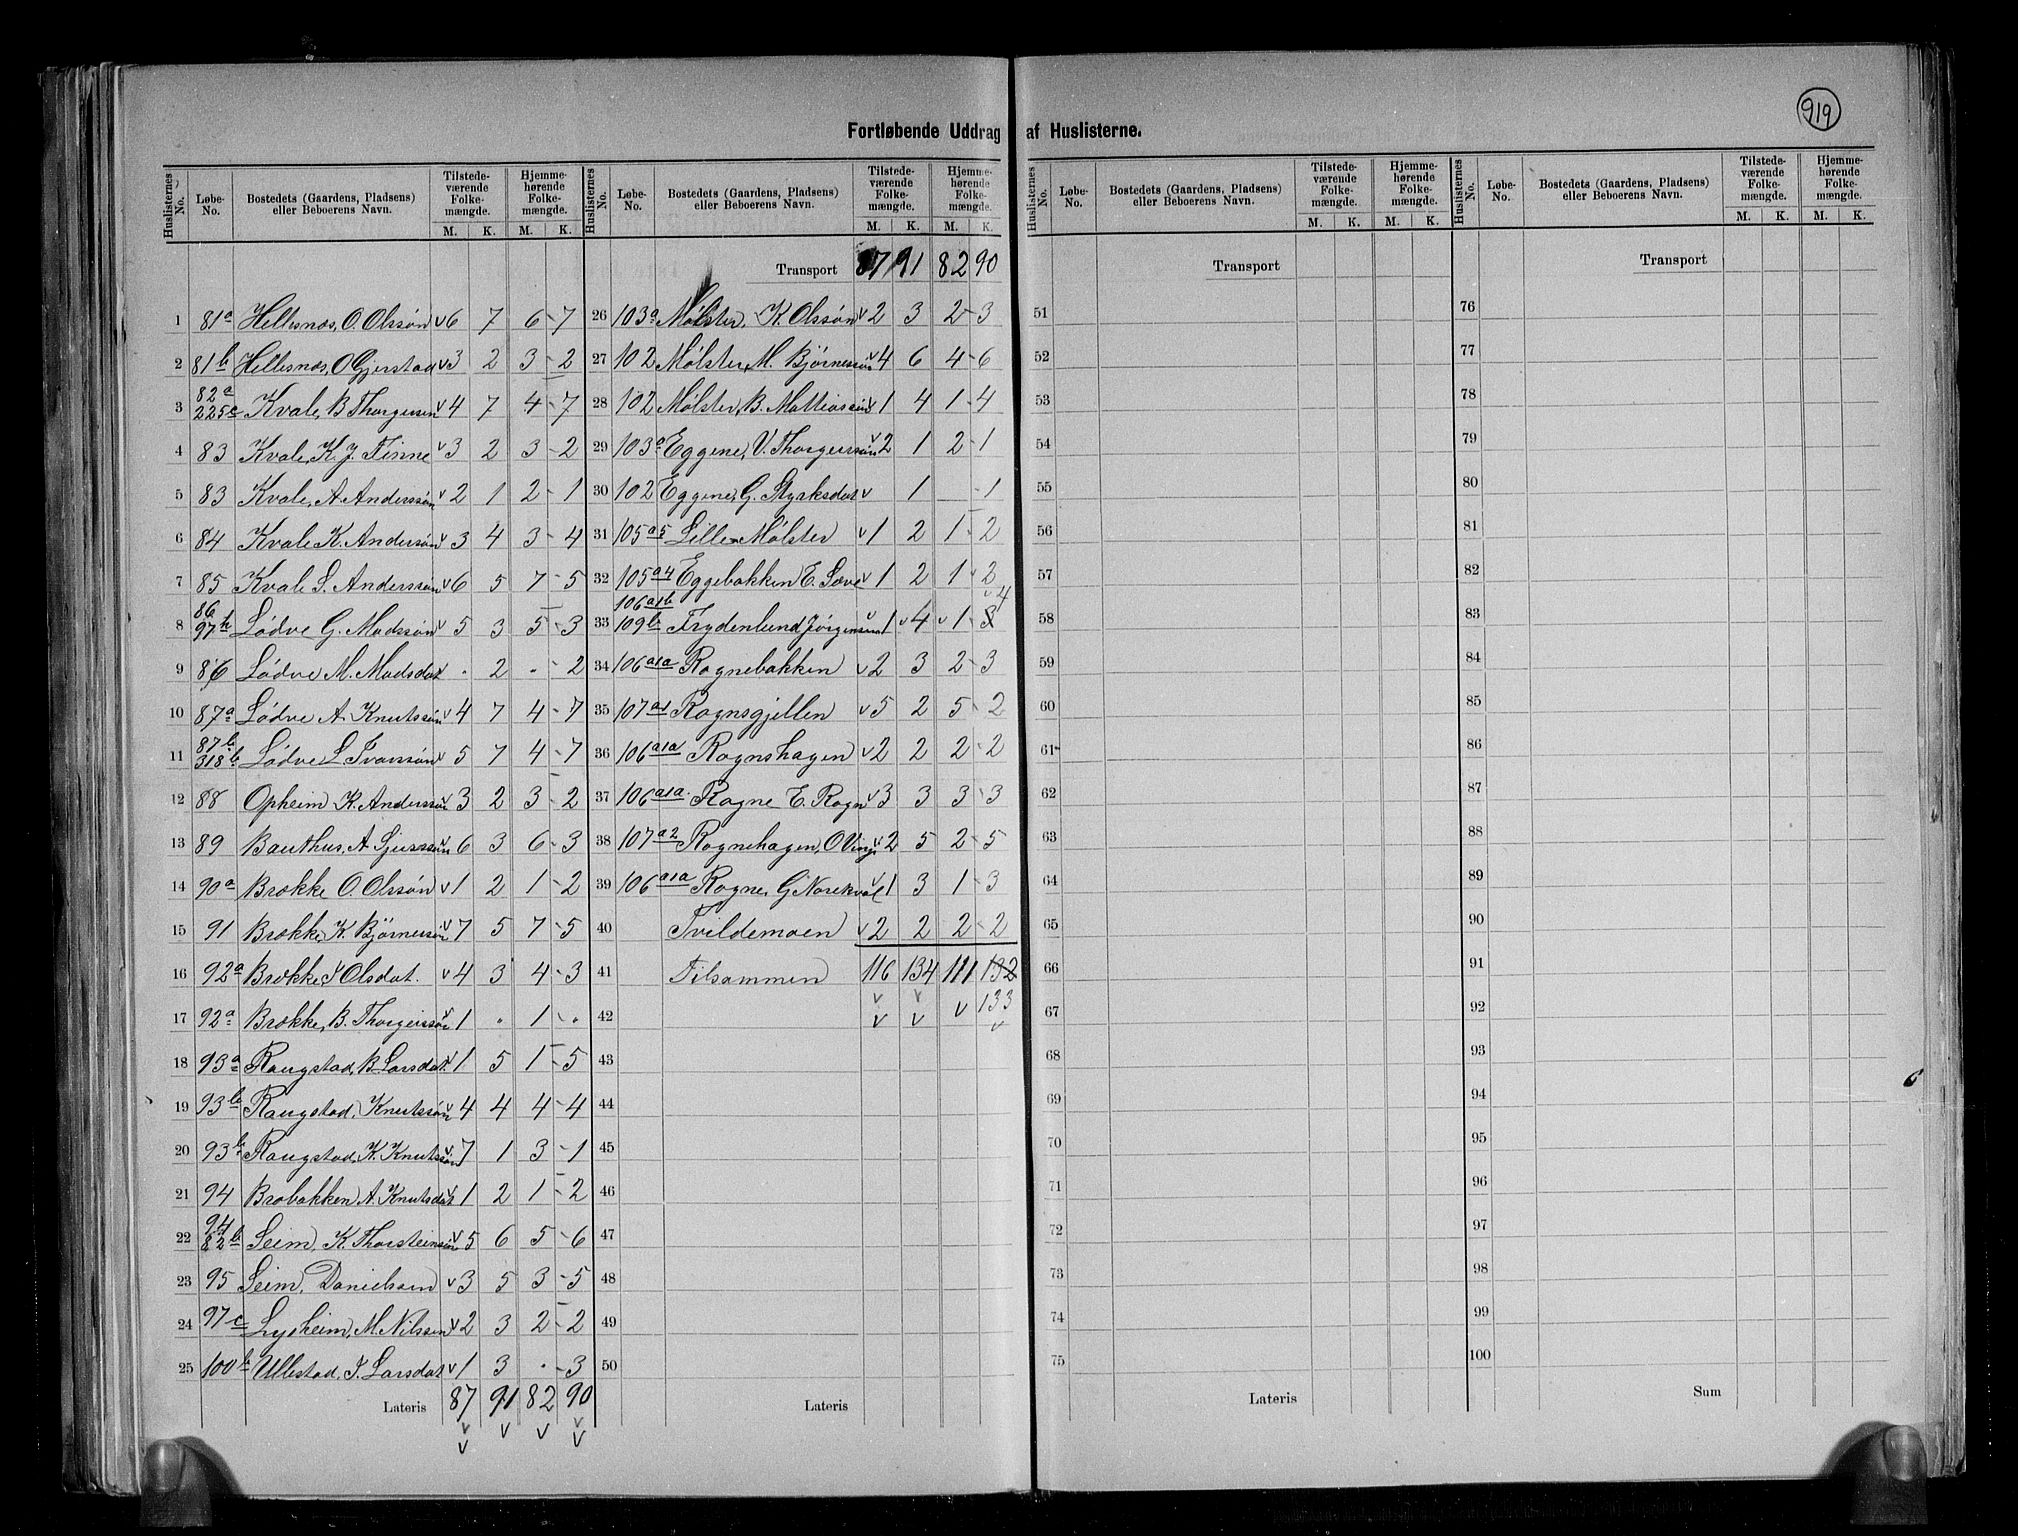 919
Fortløbende Uddrag af Huslisterne.
Huslisternes No. Løbe-No. Bostedets (Gaardens, Pladsens) eller Beboerens Navn. Tilstedeværende Folkemængde. M. K. Hjemmehørende Folkemængde. M. K.
1 81a Hellesnæs, O. Olssøn v6 7 6-7
2 81b Hellesnæs, O Gjerstad v3 2 3-2
3 82a 225c Kvale, B Thorgersen v4 7 4-7
4 83 Kvale, K. J. Finne v3 2 3-2
5 83 Kvale, A Anderssøn v2 1 2-1
6 84 Kvale K. Anderssøn v3 4 3-4
7 85 Kvale S. Anderssøn v6 5 7-5
8 86 97h Lødve G. Madssøn v5 3 5-3
9 86 Lødve M. Madsdat v. 2 . -2
10 87a Lødve A. Knutssøn v4 7 4-7
11 87b 318b Lødve L Ivarssøn v5 7 4-7
12 88 Opheim K. Anderssøn v3 2 3-2
13 89 Bauthus, A Sjurssøn v6 3 6-3
14 90a Brække O. Olssøn v1 2 1-2
15 91 Brække, K. Bjørnessøn v7 5 7-5
16 92a Brække, Olsdat. v4 3 4-3
17 92a Brække, B. Thorgeirssøn v1 . 1-.
18 93a Raugstad, B Larsdat. v1 5 1-5
19 93b Raugstad, Knutssøn v4 4 4-4
20 93b Raugstad, K. Knutssøn v7 1 3-1
21 94 Brobakken A. Knutsdat v1 2 1-2
22 94 82b Seim, K. Thorsteinssøn v5 6 5-6
23 95 Seim, Danielsen v3 5 3-5
24 97c Lysheim, M. Nilssen v2 3 2-2
25 100b Ullestad, I. Larsdat v1 3 . -3
Lateris 87 91 82 90
v v v v
v v
Huslisternes No. Løbe-No. Bostedets (Gaardens, Pladsens) eller Beboerens Navn. Tilstedeværende Folkemængde. M. K. Hjemmehørende Folkemængde. M. K.
Transport 87 91 82 90
26 103a Mølster, K. Olssøn v2 3 2-3
27 102 Mølster, M. Bjørnessøn v4 6 4-6
28 102 Mølster, B. Mathiassøn v1 4 1-4
29 103a Eggene, V. Thorgeirssøn v2 1 2-1
30 102 Eggene, G. Styrksdat v 1 -1
31 105a5 Lille Mølster v1 2 1-2
32 105a4 Eggebakken E. Sæve v1 2 1-2
33 106a1b 109b Frydenlund Jørgensen v1 v4 v1-3 v4
34 106a1a Rognebakken v2 3 2-3
35 107a1 Rognsgjellen v5 2 5-2
36 106a1a Rognshagen v2 2 2-2
37 106a1a. Rogne E. Rogn v3 3 3-3
38 107a2 Rognehagen, O Vinje v2 5 2-5
39 106a1a Rogne, G Norekval v1 3 1-3
40 Tvildemoen v2 2 2-2
41 Tilsammen 116 134 111 132
42 v v v 133
v v v
43
44
45
46
47
48
49
50
Lateris
Huslisternes No. Løbe-No. Bostedets (Gaardens, Pladsens) eller Beboerens Navn. Tilstedeværende Folkemængde. M. K. Hjemmehørende Folkemængde. M. K.
Transport
51
52
53
54
55
56
57
58
59
60
61
62
63
64
65
66
67
68
69
70
71
72
73
74
75
Lateris
Huslisternes No. Løbe-No. Bostedets (Gaardens, Pladsens) eller Beboerens Navn. Tilstedeværende Folkemængde. M. K. Hjemmehørende Folkemængde. M. K.
Transport
76
77
78
79
80
81
82
83
84
85
86
87
88
89
90
91
92
93
94
95
96
97
98
99
100
Sum